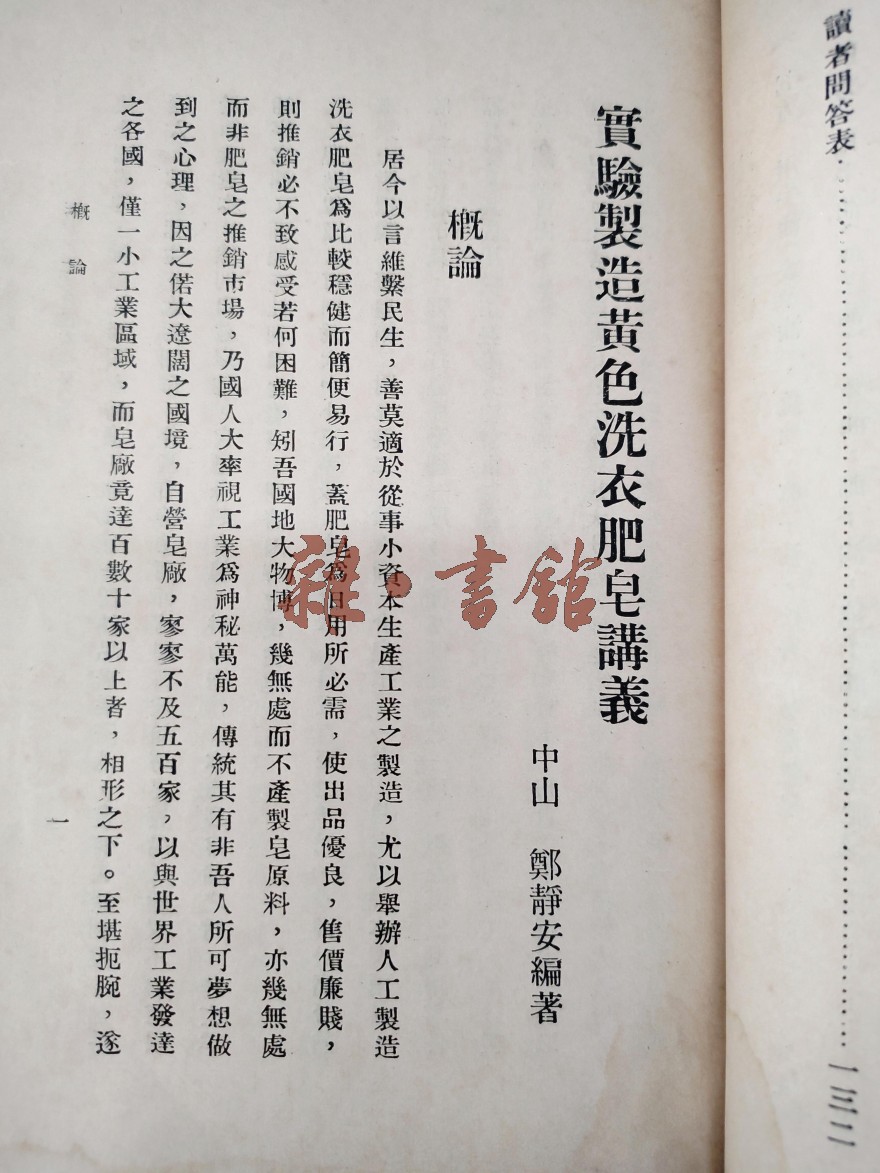 讀者問答表……………………………………一三二
實驗製造黃色洗衣肥皂講義
中山 鄭靜安編著
概論
居今以言維繫民生，善莫適於從事小資本生產工業之製造，尤以舉辦人工製造
洗衣肥皂爲比較穩健而簡便易行，蓋肥皂爲日用所必需，使出品優良，售價廉賤，
則推銷必不致感受若何困難，矧吾國地大物博，幾無處而不產製皂原料，亦幾無處
而非肥皂之推銷市場，乃國人大率視工業爲神秘萬能，傳統其有非吾人所可夢想做
到之心理，因之偌大遼闊之國境，自營皂廠，寥寥不及五百家，以與世界工業發達
之各國，僅一小工業區域，而皂廠竟達百數十家以上者，相形之下。至堪扼腕，遂
概論
一
雜·書館